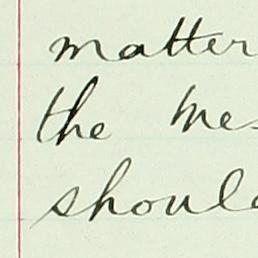 matter
the Mes
should